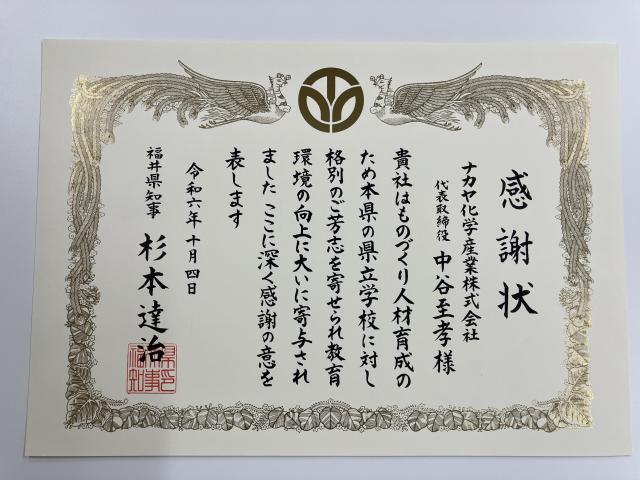 感謝状
ナカヤ化学産業株式会社
代表取締役 中谷至孝様
貴社はものづくり人材育成の
ため本県の県立学校に対し
格別のご芳志を寄せられ教育
環境の向上に大いに寄与され
ました ここに深く感謝の意を
表します
令和六年十月四日
福井県知事 杉本達治